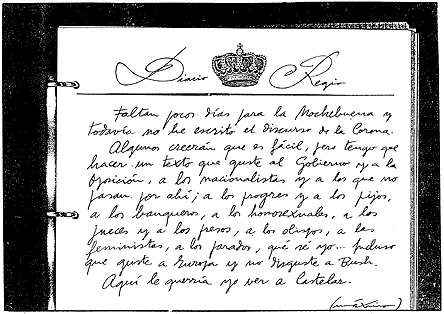 Diario Regio
Faltan pocos días para la Nochebuena y
todavía no he escrito el discurso de la Corona.
Algunos creerán que es fácil, pero tengo que
hacer un texto que guste al Gobierno y a la
Oposición, a los nacionalistas y a los que no
pasan por ahí; a los progres y a los pijos,
a los banqueros, a los homosexuales, a los
jueces y a los presos, a los obispos, a las
feministas, a los parados, qué sé yo... incluso
que guste a Europa y no disguste a Bush.
Aquí le querría yo ver a Castelar.
(máximo)